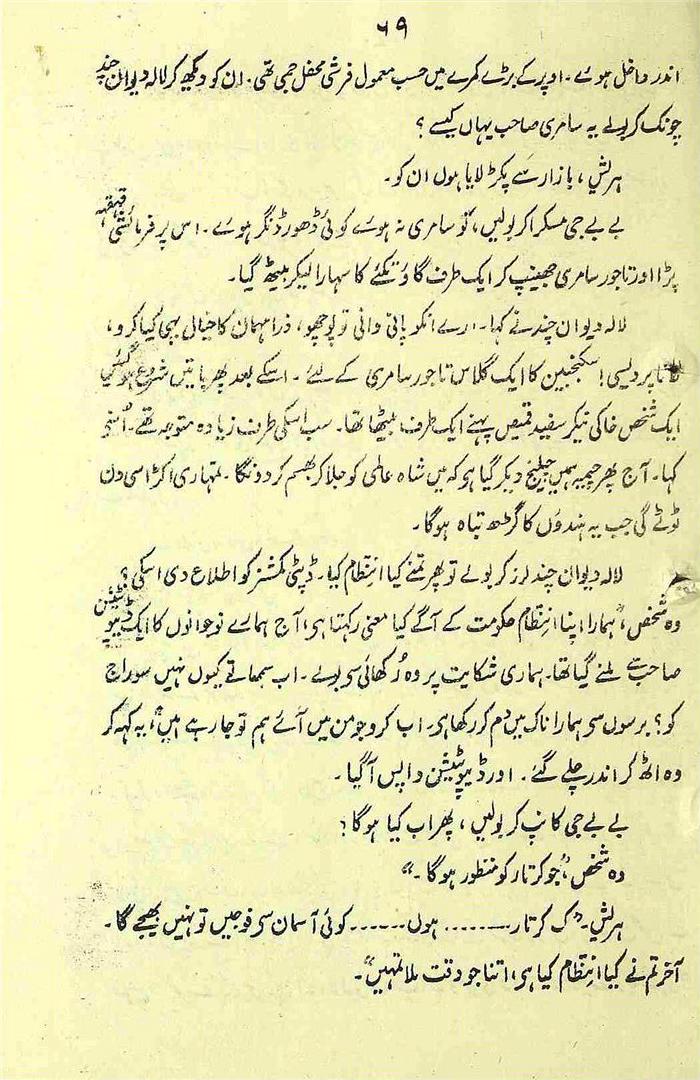 ۶۹
اندر داخل ہوئے۔ اوپر کے بڑے کمرے میں حسب معمول فرشی محفل جمی تھی۔ ان کو دیکھ کر لالہ دیوان چند
چونک کر بولے یہ سامری صاحب یہاں کیسے؟
ہریش، بازار سے پکڑ لایا ہوں ان کو۔
بے بے جی مسکرا کر بولیں، تو سامری نہ ہوئے کوئی ڈھور ڈنگر ہوئے۔ اس پر فرمائشی قہقہہ
پڑا اور تاجور سامری جھینپ کر ایک طرف گاؤ تکئے کا سہارا لیکر بیٹھ گیا۔
لالہ دیوان چند نے کہا۔ ارے انکو پانی وانی تو پوچھو، ذرا مہمان کا خیال بھی کیا کرو،
لانا پردیسی! سکنجبین کا ایک گلاس تاجور سامری کے لئے۔ اسکے بعد پھر باتیں شروع ہو گئیں
ایک شخص خاکی نیکر سفید قمیص پہنے ایک طرف بیٹھا تھا۔ سب اسکی طرف زیادہ متوجہ تھے۔ اُسنے
کہا۔ آج پھر چیمہ ہمیں چیلنج دیکر گیا ہو کہ میں شاہ عالمی کو جلا کر بھسم کر دونگا۔ تمہاری اکڑ اسی دن
ٹوٹے گی جب یہ ہندوں کا گڑھ تباہ ہوگا۔
لالہ دیوان چند لرز کر بولے تو پھر تمنے کیا انتظام کیا۔ ڈپٹی کمشنر کو اطلاع دی اسکی؟
وہ شخص، "ہمارا اپنا انتظام حکومت کے آگے کیا معنی رکھتا ہی، آج ہمارے نوجوانوں کا ایک ڈیپوٹیشن
صاحب سے ملنے گیا تھا۔ ہماری شکایت پر وہ رُکھائی سی بولے۔ اب سمہاتے کیوں نہیں سوراج
کو؟ برسوں سی ہمارا ناک میں دم کر رکھا ہی۔ اب کرو جو من میں آئے ہم تو جا رہے ہیں"، یہ کہہ کر
وہ اٹھ کر اندر چلے گئے۔ اور ڈیپوٹیشن واپس آ گیا۔
بے بے جی کانپ کر بولیں، پھر اب کیا ہوگا؟
وہ شخص، "جو کرتار کو منظور ہوگا۔"
ہریش۔ "ک کرتار۔۔۔۔۔۔۔۔ ہوں۔۔۔۔۔۔ کوئی آسمان سی فوجیں تو نہیں بھیجے گا۔
آخر تم نے کیا انتظام کیا ہی، اتنا جو وقت ملا تمہیں"۔